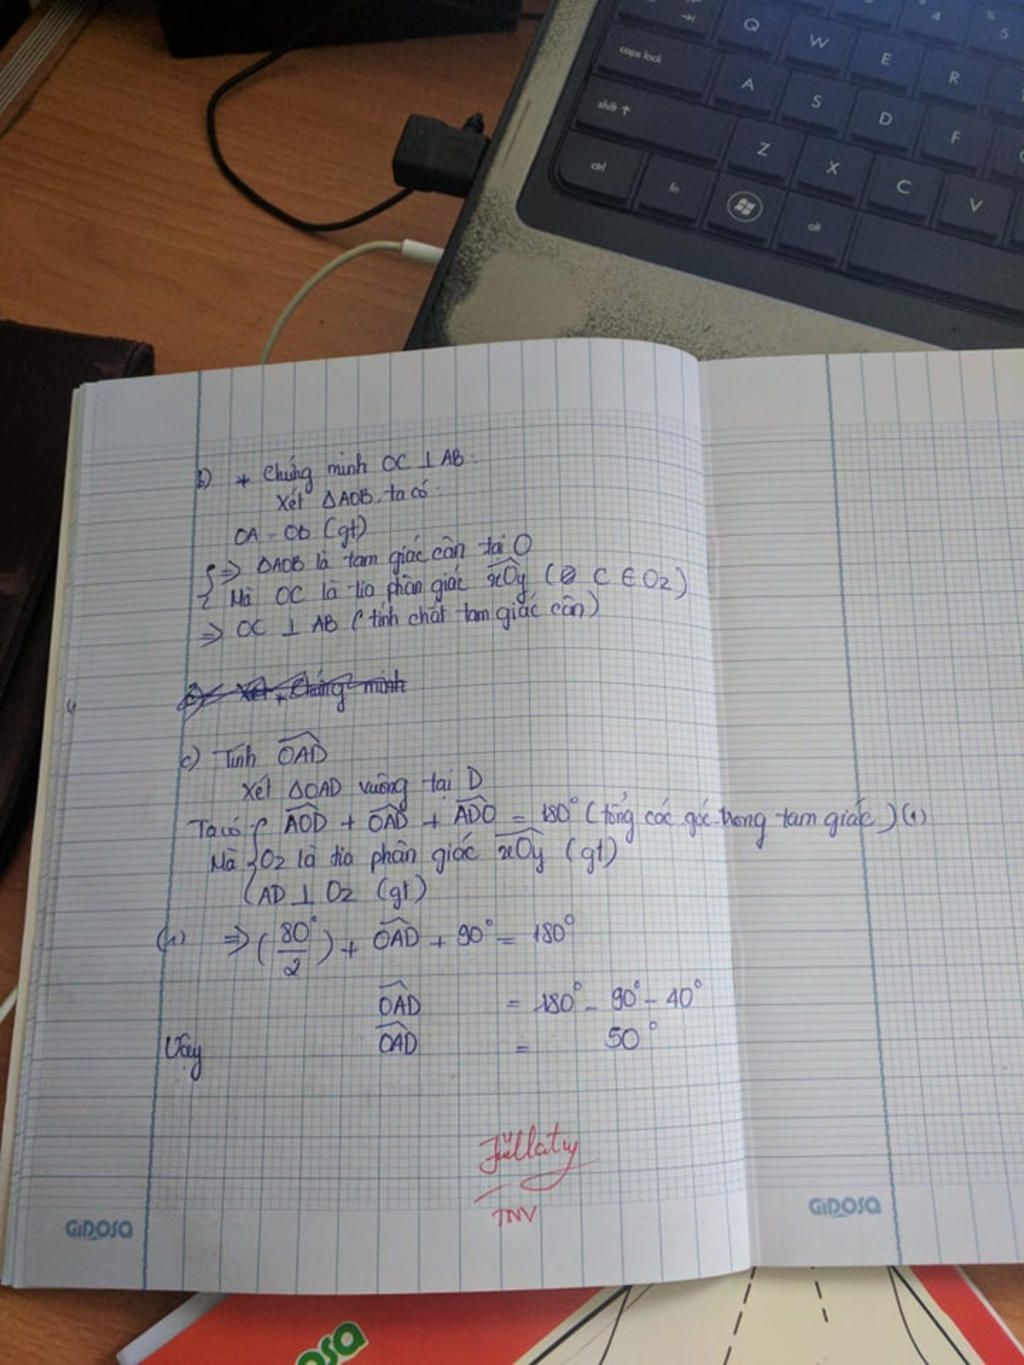 Q
W
E
R
4
%
5
caps lock
A
S
D
F
shift ↑
Z
X
C
V
ctrl
fn
alt
b) * Chứng minh OC ⊥ AB.
Xét ΔAOB. ta có:
OA = OB (gt)
{ ⇒ ΔAOB là tam giác cân tại O
Mà OC là tia phân giác xOy (C ∈ Oz)
⇒ OC ⊥ AB (tính chất tam giác cân)
c) Tính OAD
Xét ΔOAD vuông tại D
Ta có { AOD + OAD + ADO = 180° (tổng các góc trong tam giác) (1)
Mà Oz là tia phân giác xOy (gt)
AD ⊥ Oz (gt)
(1) ⇒ (80°/2) + OAD + 90° = 180°
OAD = 180° - 90° - 40°
Vậy OAD = 50°
TNV
GIDOSA
GIDOSA
osa